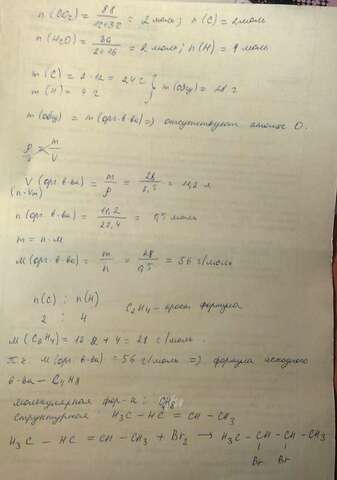 n(CO₂) = 88/12+32 = 2 моль; n(C) = 2 моль
n(H₂O) = 36/2+16 = 2 моль; n(H) = 4 моль
m(C) = 2·12 = 24 г
m(H) = 4 г } m(общ) = 28 г
m(общ) = m(орг. в-ва) => отсутствуют атомы O.
ρ = m/V
V(орг. в-ва) = m/ρ = 28/2,5 = 11,2 л
(n·Vm)
n(орг. в-ва) = 11,2/22,4 = 0,5 моль
m = n·M
M(орг. в-ва) = m/n = 28/0,5 = 56 г/моль
n(C) : n(H)
2 : 4 C₂H₄ - формула
M(C₂H₄) = 12·2 + 4 = 28 г/моль.
т.к. M(орг. в-ва) = 56 г/моль => формула исходного
в-ва - C₄H₈
молекулярная фор-а: C₄H₈
структурная: H₃C - HC = CH - CH₃
H₃C - HC = CH - CH₃ + Br₂ → H₃C - CH - CH - CH₃
Br Br